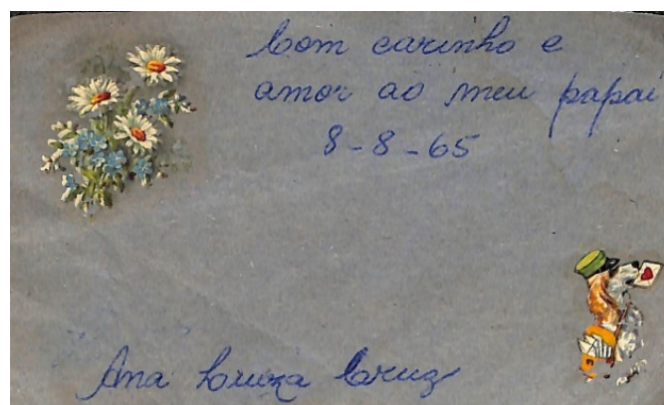 Com carinho e
amor ao meu papai
8-8-65
Ana Luiza Cruz